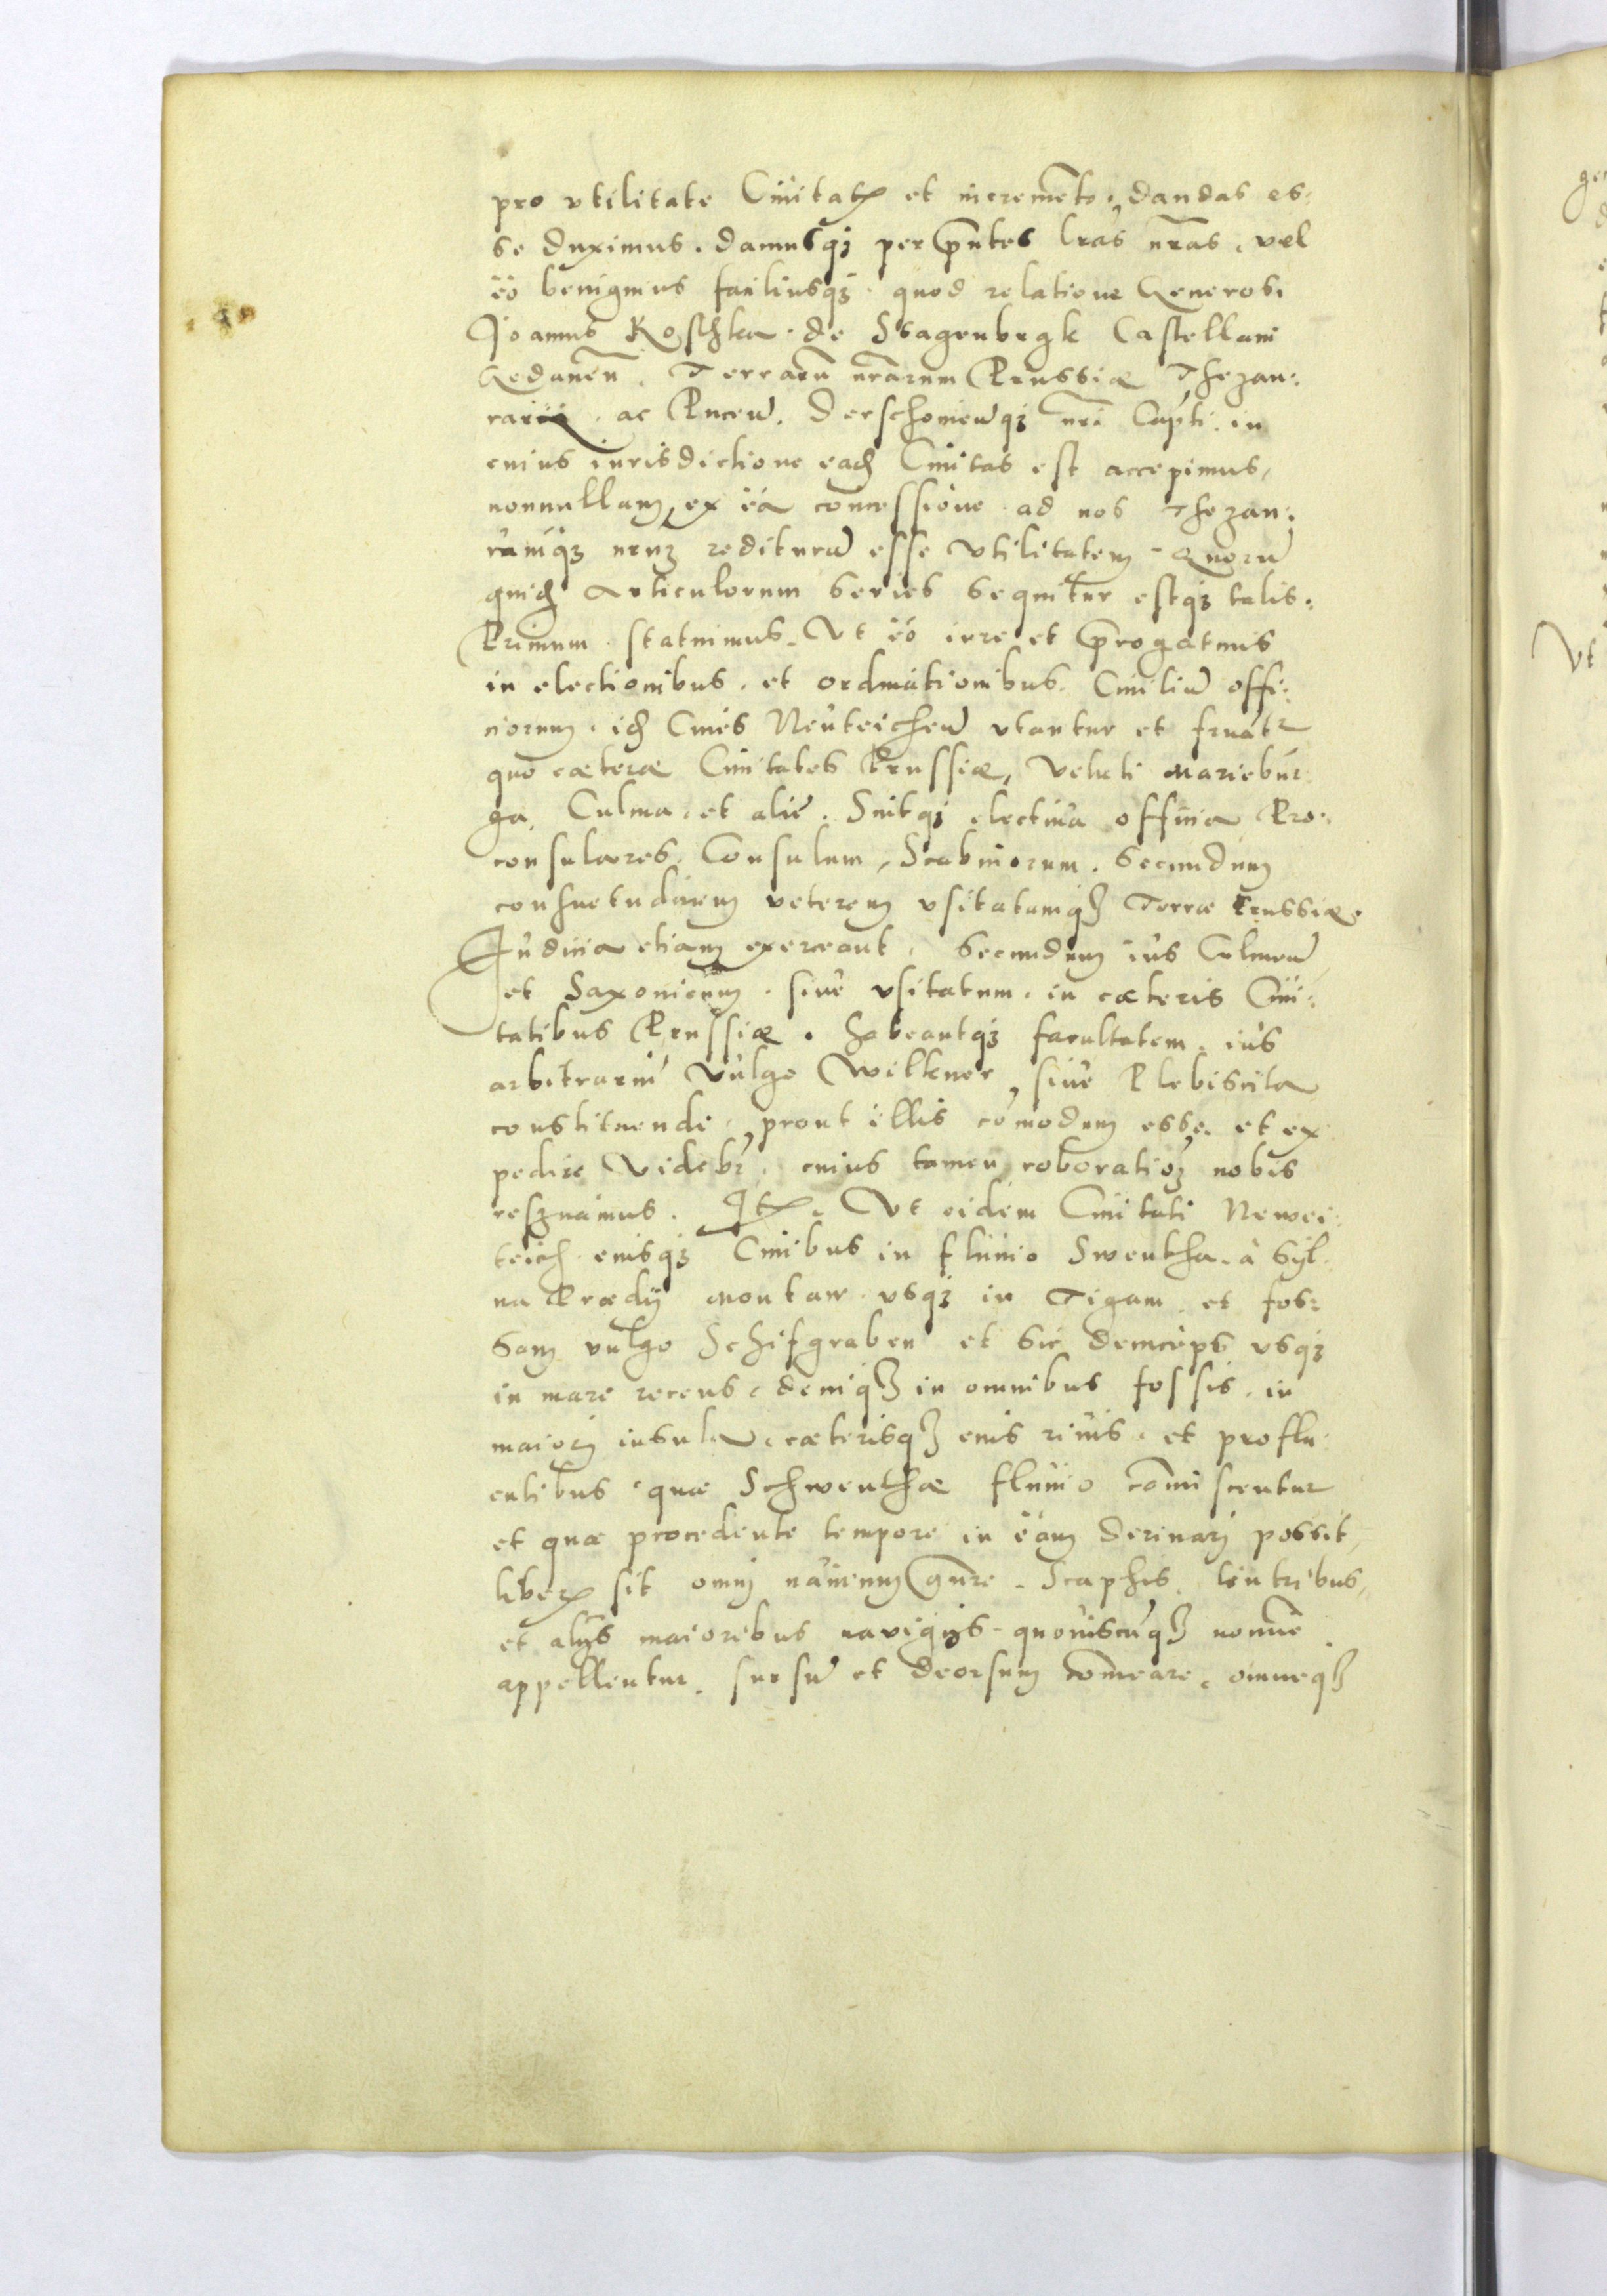 pro vtilitate Ciuitatꝭ et incremēto, dandas es-
se duximus. damusqꝫ per p̄ntes lr̄as nr̄as, vel
eo benignius faciliusqꝫ. quod relatione Generosi
Joannis Koschka de Stagenbergk Castellani
Gedanen̄. Terrarū nr̄arum Prussiæ Thezau-
rarij. ac Pucen̄. Derschouien̄qꝫ nr̄i Capti. in
cuius iurisdictione eadꝫ Ciuitas est accepimus,
nonnullam, ex ea concessione ad nos Thezau-
rumqꝫ nr̄um redituram esse vtilitatem. Quorū
quidꝫ articulorum series sequitur estqꝫ talis.
Primum statuimus. Vt eo iure et p̄rogatiuis
in electionibus. et ordinationibus. Ciuiliū offi-
ciorum. idꝫ Ciues Neuteichen̄ vtantur et fruātr
quo cæteræ Ciuitates Prussiæ, veluti Mariebur-
ga, Culma, et aliæ. Sintqꝫ electiua officia Pro-
consulares. Consulum, Scabinorum. secundum
consuetudinem veterem vsitatamqꝫ Terræ Prussiæ.
Iudicia etiam exerceant. secundum ius Culmen̄
et Saxonicum. siue vsitatum. in cæteris Ciui-
tatibus Prussiæ. habeantqꝫ facultatem. ius
arbitrariū vulgo Wilkner, siue Plebiscita
constituendi, prout illis cōmodum esse. et ex
pedire videbr. cuius tamen roboratioꝫ nobis
resȝuamus. Itꝭ. Vt eidem Ciuitati Newei-
teich eiusqꝫ Ciuibus in fluuio Swentha. a syl-
ua Prædij Montaw vsqꝫ in Tigam et fos-
sam vulgo Schifgraben et sic deinceps vsqꝫ
in mare recens, deniqꝫ in omnibus fossis. in
maiori insula, cæterisqꝫ eius riuis, et proflu-
entibus quæ Schwenthæ fluuio cōmiscentur
et quæ procedente tempore in eam deriuari possit,
liberꝭ sit omni nauium gn̄re. Scaphis. lintribus,
et alijs maioribus navigijs. quouiscūqꝫ nomine
appellentur. sursū et deorsum cōmeare, omneqꝫ